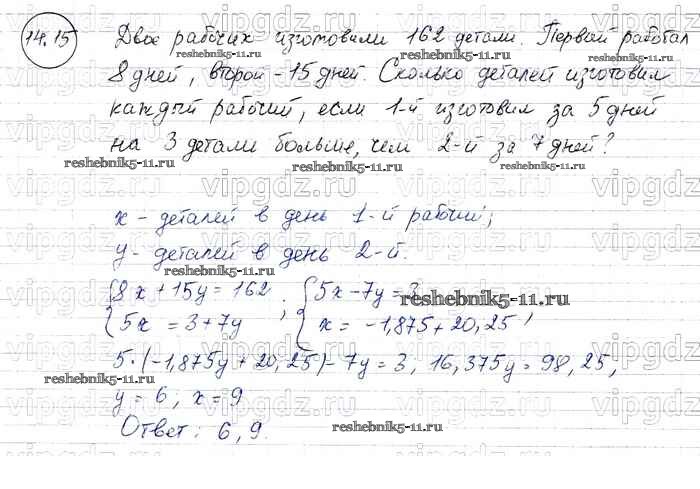 14.15 Двое рабочих изготовили 162 детали. Первый работал
8 дней, второй - 15 дней. Сколько деталей изготовил
каждый рабочий, если 1-й изготовил за 5 дней
на 3 детали больше, чем 2-й за 7 дней?
x - деталей в день 1-й рабочий;
y - деталей в день 2-й.
{8x + 15y = 162 ; {5x - 7y = 3
{5x = 3 + 7y {x = -1,875 + 20,25,
5·(-1,875y + 20,25) - 7y = 3; 16,375y = 98,25,
y = 6, x = 9
Ответ: 6, 9.
vipgdz.ru
reshebnik5-11.ru